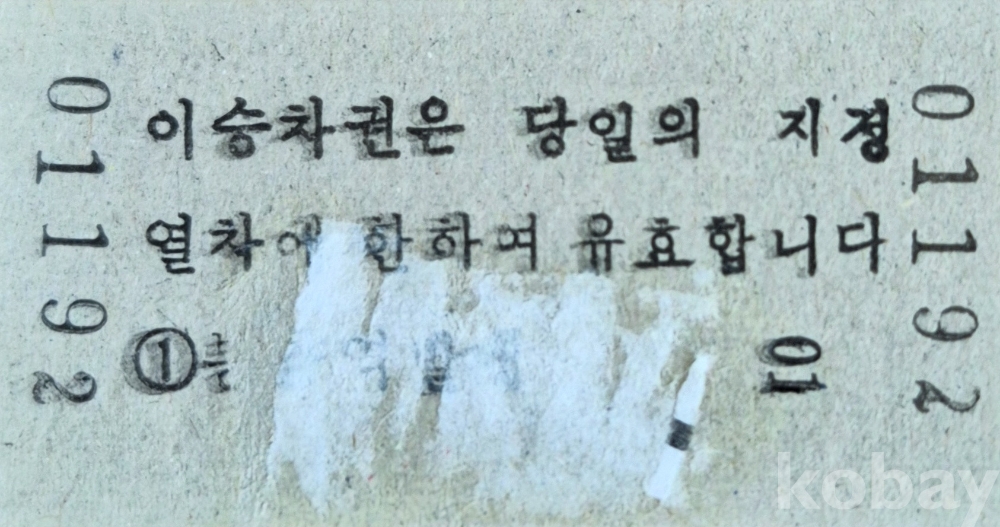 01192
이 승차권은 당일의 지정
열차에 한하여 유효합니다
①
01
01192
kobay